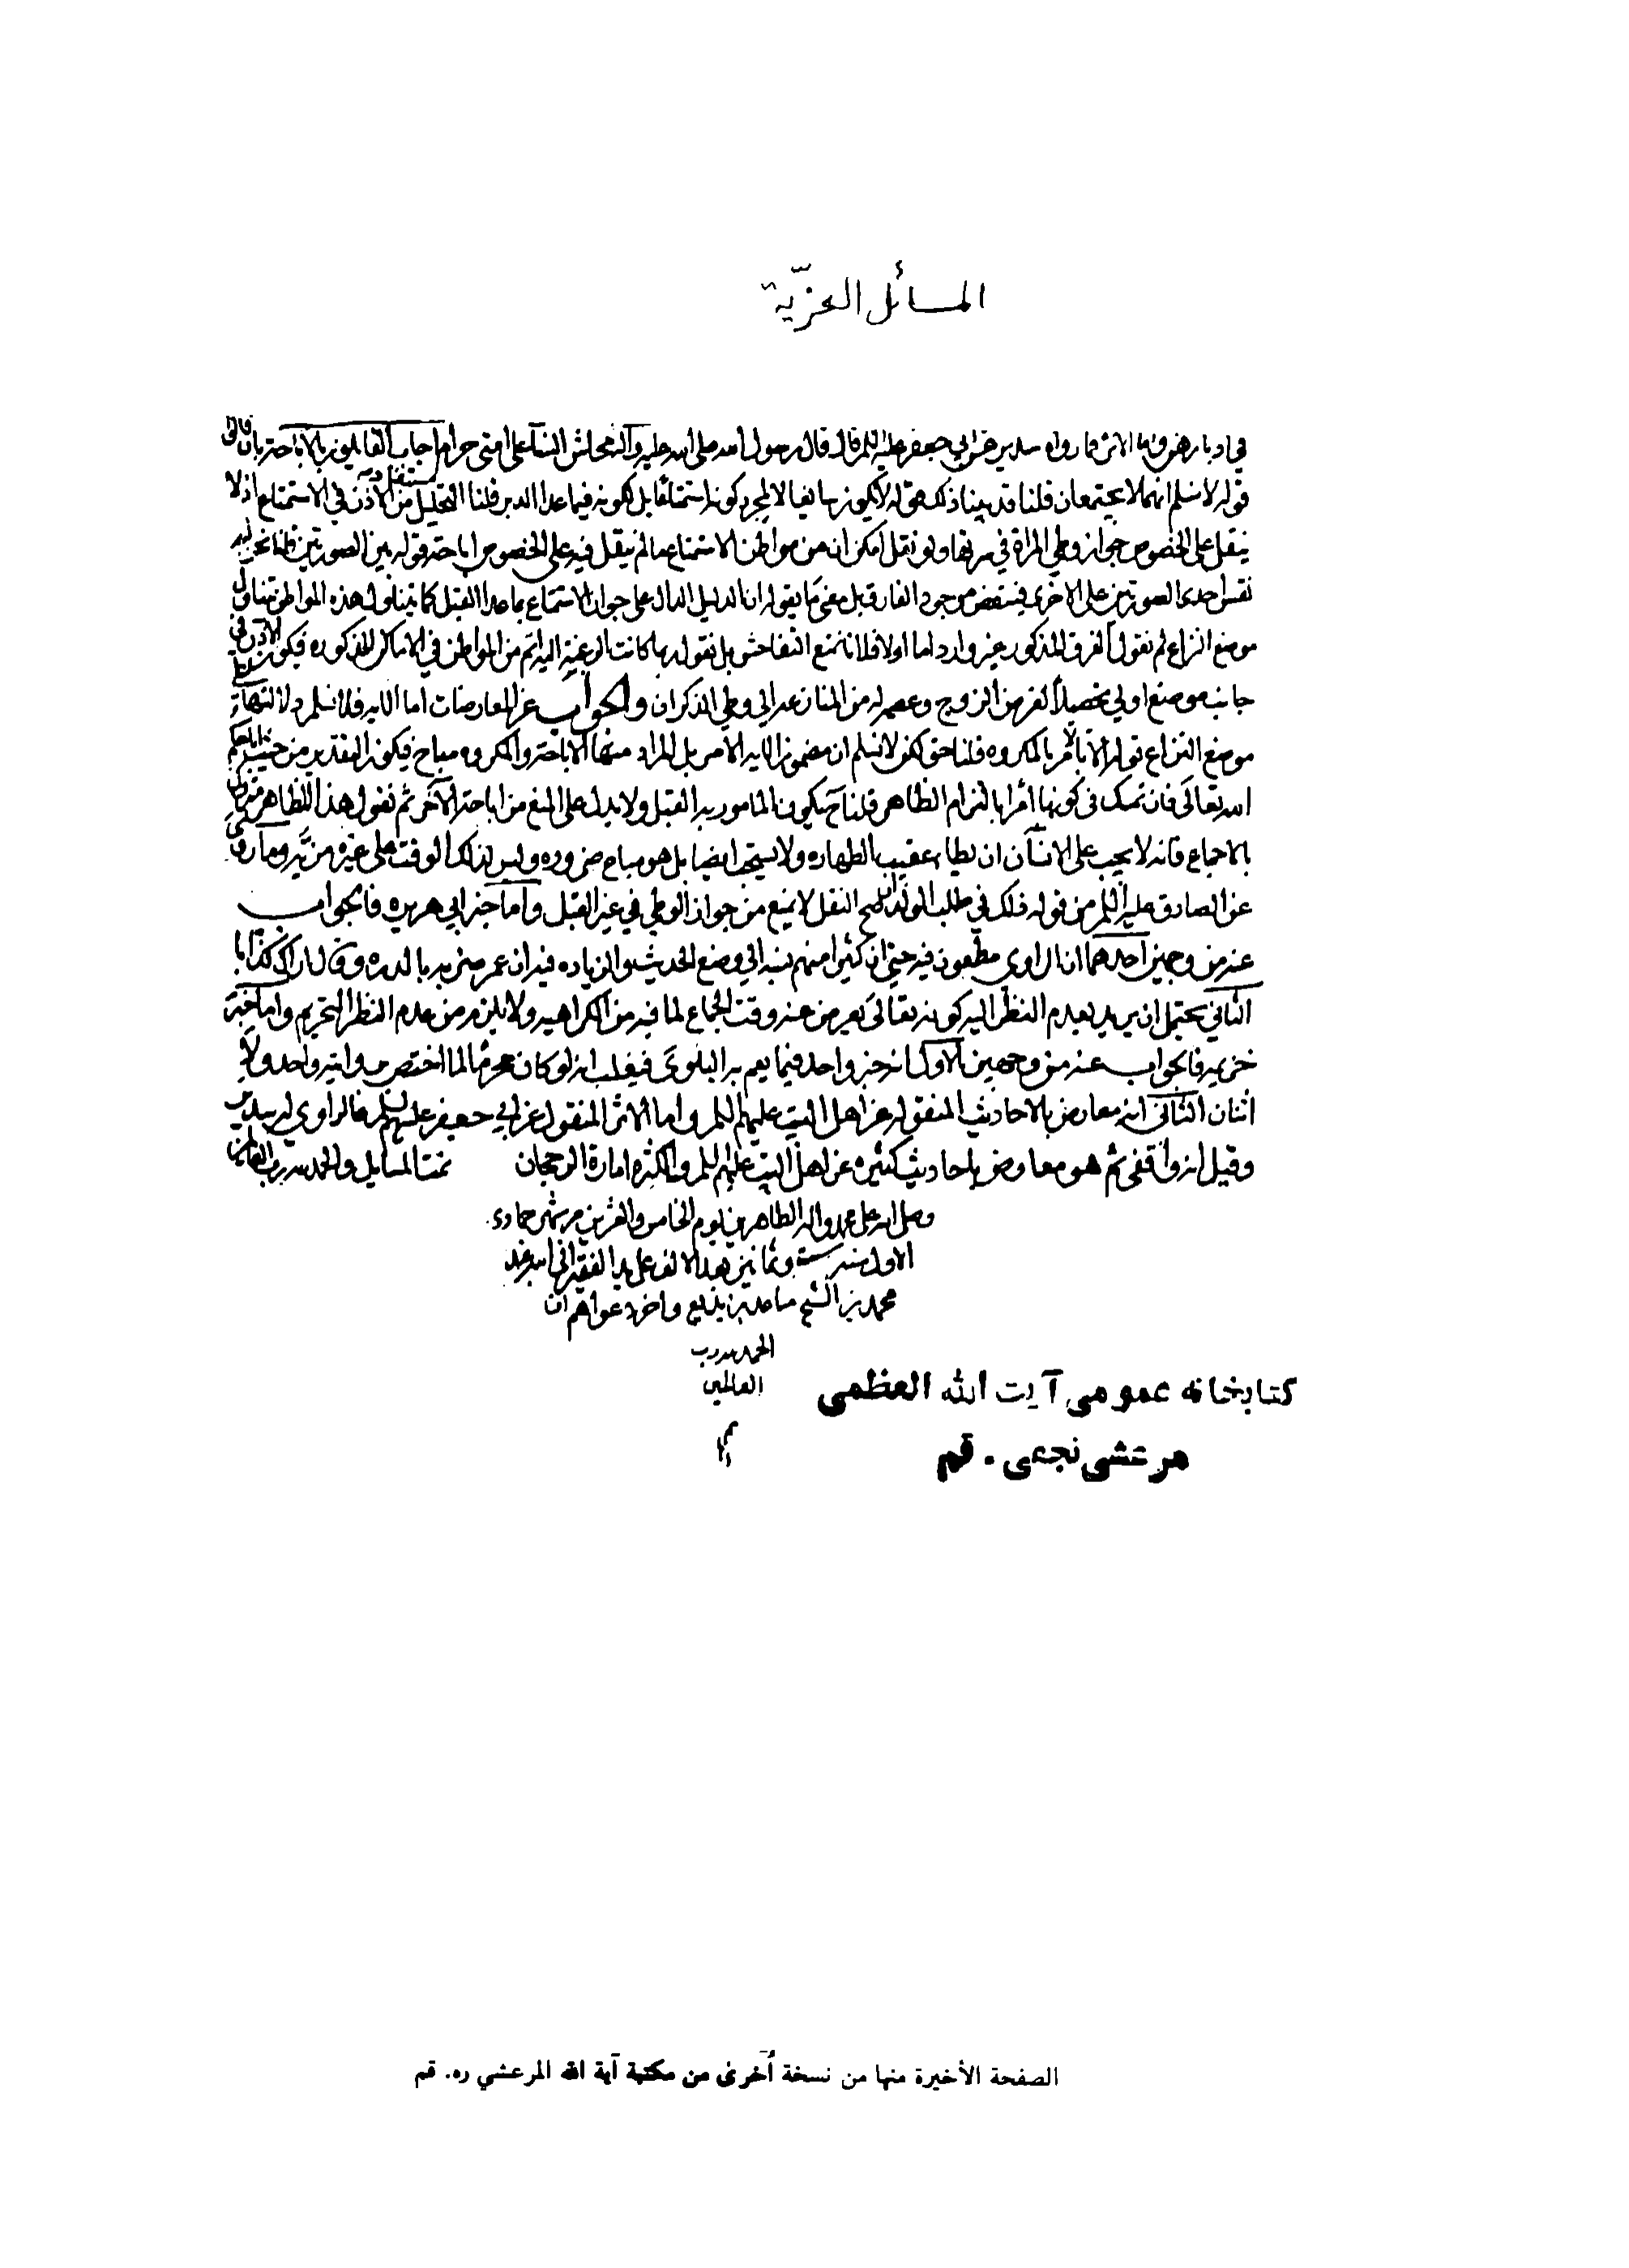 المسائل العزّية
في ادبارهن واما الاثر فما رواه سدير عن ابي جعفر عليه السلم قال قال رسول الله صلى الله عليه وآله محاش النسآء على امتى حرام اجاب القايلون بالاباحة بان
قوله لا نسلم انهما لا يجتمعان قلنا قد بينا ذلك قوله لا يكونها بغيا لا لمجرد كونه استمتاعا بل لكونه فيما عدا الدبر قلنا التحليل من الاذن في الاستمتاع اذ لا
ينقل على الخصوص جواز وطي المراة في سرتها ولو نقل امكن ان من مواطن الاستمتاع ما لم ينقل فيه على الخصوص اباحته قوله بين الصورتين قلنا نحن لم
نقس احدى الصورتين على الاخرى فينتقض بوجود الفارق بل معنى ما يقوله ان الدليل الدال على جواز الاستمتاع بما عدا القبل كما يتناول هذه المواطن يتناول
موضع النزاع ثم نقول الفرق المذكور غير وارد اما اولا فلانا نمنع التفاحش بل نقول ربما كانت الرغبة اليه اتم من المواطن في الاماكن المذكوره فيكون الاذن في
جانبه موضع اولي تحصيلا لغرض الزوج وعصمه له من المنازعه الي وطي الذكران والجواب عن المعارضات اما الايه فلا نسلم دلالتها على
موضع النزاع قوله الا يامر بالمكروه قلنا حق لكن لا نسلم ان مضمون الايه الامر بل المراد منها الاباحة والمكروه مباح فيكون التقدير من حيث اباحكم
الله تعالى فان تمسك في كونها أمرا بالتزام الظاهر قلنا ح يكون المامور به القبل ولا يدل على المنع من اباحة الآخر ثم نقول هذا الظاهر متروك
بالاجماع فانه لا يجب على الانسان ان يطا عقيب الطهاره ولا يستحب ايضا بل هو مباح ضروره وليس لذلك الوقت على غيره مزيه وما روى
عن الصادق عليه السلم من قوله ذلك في طلب الولد ان صح النقل لا يمنع من جواز الوطي في غير القبل واما خبر ابي هريره فالجواب
عنه من وجهين احدهما ان الراوى مطعون فيه حتى ان كثيرا منهم نسبه الي وضع الحديث والزياده فيه وان عمر ضربه بالدره وقال اراك كذابا
الثاني يحتمل ان يريد بعدم النظر اليه كونه تعالى يعرض عنه وقت الجماع لما فيه من الكراهيه ولا يلزم من عدم النظر التحريم واما خبر
خزيمه فالجواب عنه من وجهين الاول انه خبر واحد فيما يعم به البلوى فيغلب انه لو كان محرما لما اختص بروايته واحد ولا
اثنان الثاني انه معارض بالاحاديث المنقوله عن اهل البيت عليهم السلم واما الاثر المنقول عن ابي جعفر عليه السلم فالراوي له سدير
وقيل انه واقفى ثم هو معارض باحاديث كثيره عن اهل البيت عليهم السلم والكثره امارة الرجحان تمت المسايل والحمد لله رب العالمين
وصلى الله على محمد واله الطاهرين ليوم الخامس والعشرين من شهر جمادى
الاول سنه ست وثمانين بعد الالف على يد الفقير الى الله
محمد بن الشيخ ماجد بن بديع واخر دعواهم ان
الحمد لله رب
العالمين
كتابخانه عمومى آيت الله العظمى
مرعشى نجفى . قم
الصفحة الأخيرة منها من نسخة أخرى من مكتبة آية الله المرعشي ره. قم